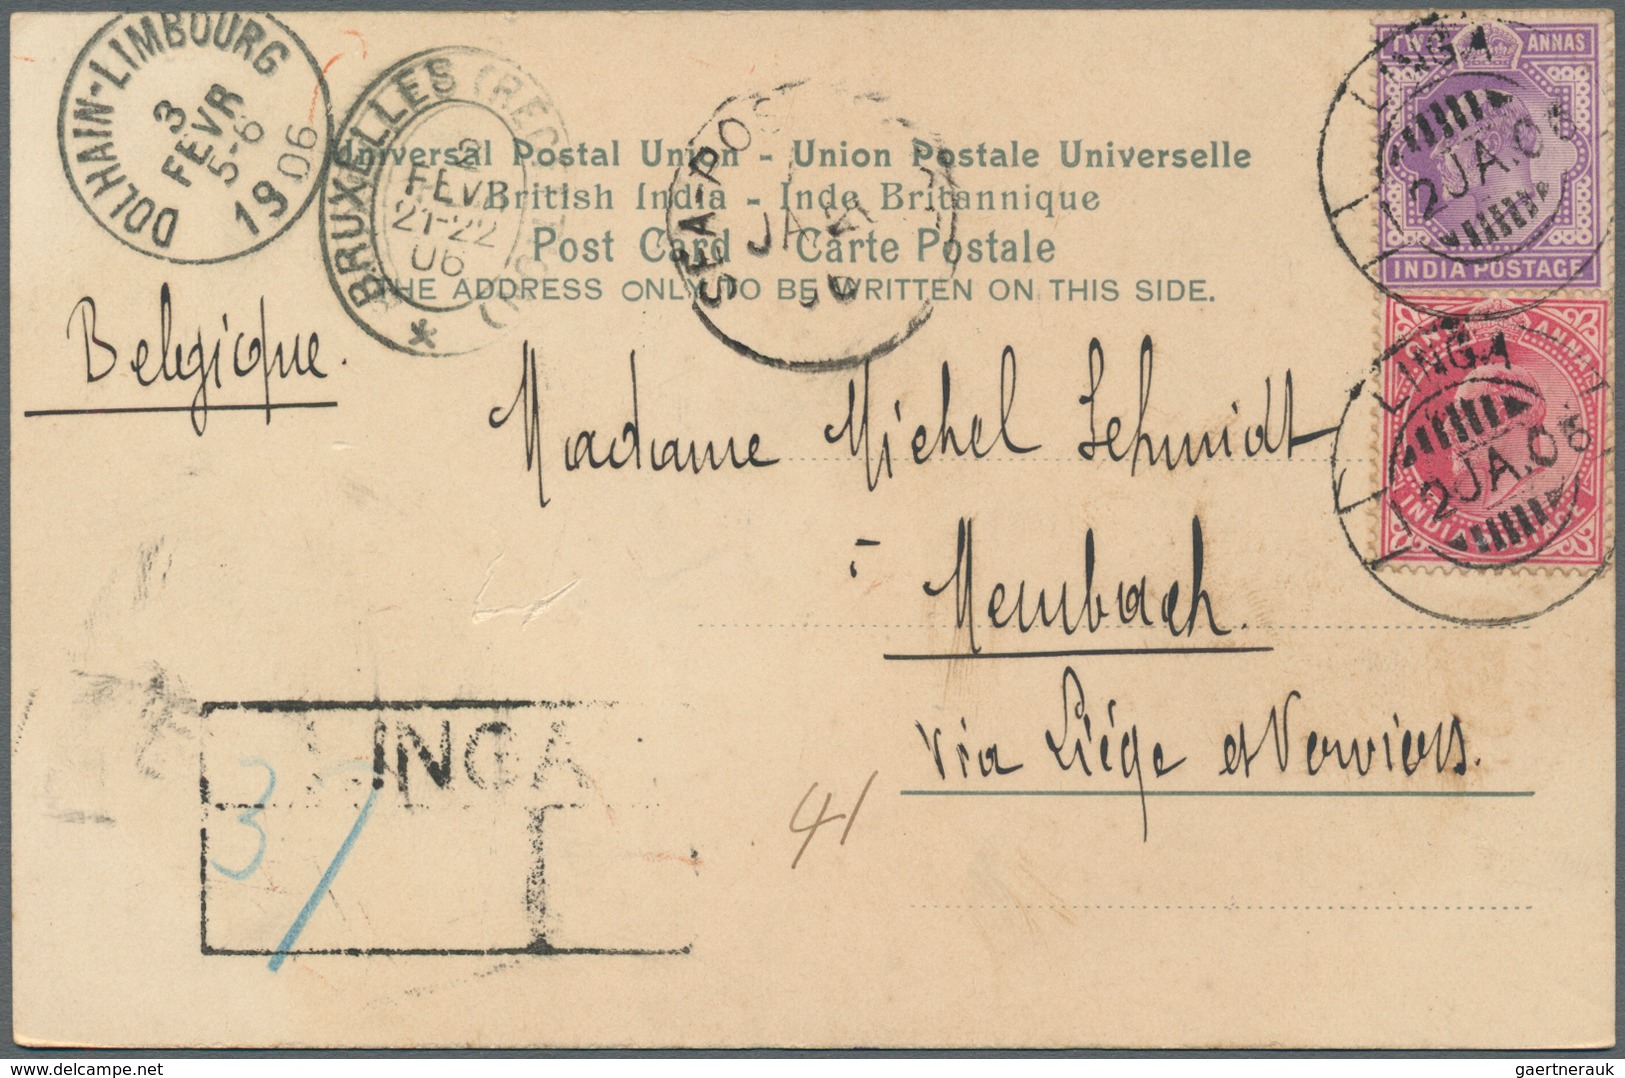 DOLHAIN-LIMBOURG
3
FEVR
5-6
1906
BRUXELLES (REC
2
FEVR
21-22
06
*
SEA-POS
JA
LINGA
2 JA.06
TWO ANNAS
INDIA POSTAGE
LINGA
2 JA.06
ONE ANNA
INDIA POSTAGE
Universal Postal Union - Union Postale Universelle
British India - Inde Britannique
Post Card Carte Postale
THE ADDRESS ONLY TO BE WRITTEN ON THIS SIDE.
Belgique.
Madame Michel Schmidt
à Membach.
via Liége et Verviers.
LINGA
37
41
delcampe.net
gaertnerauk